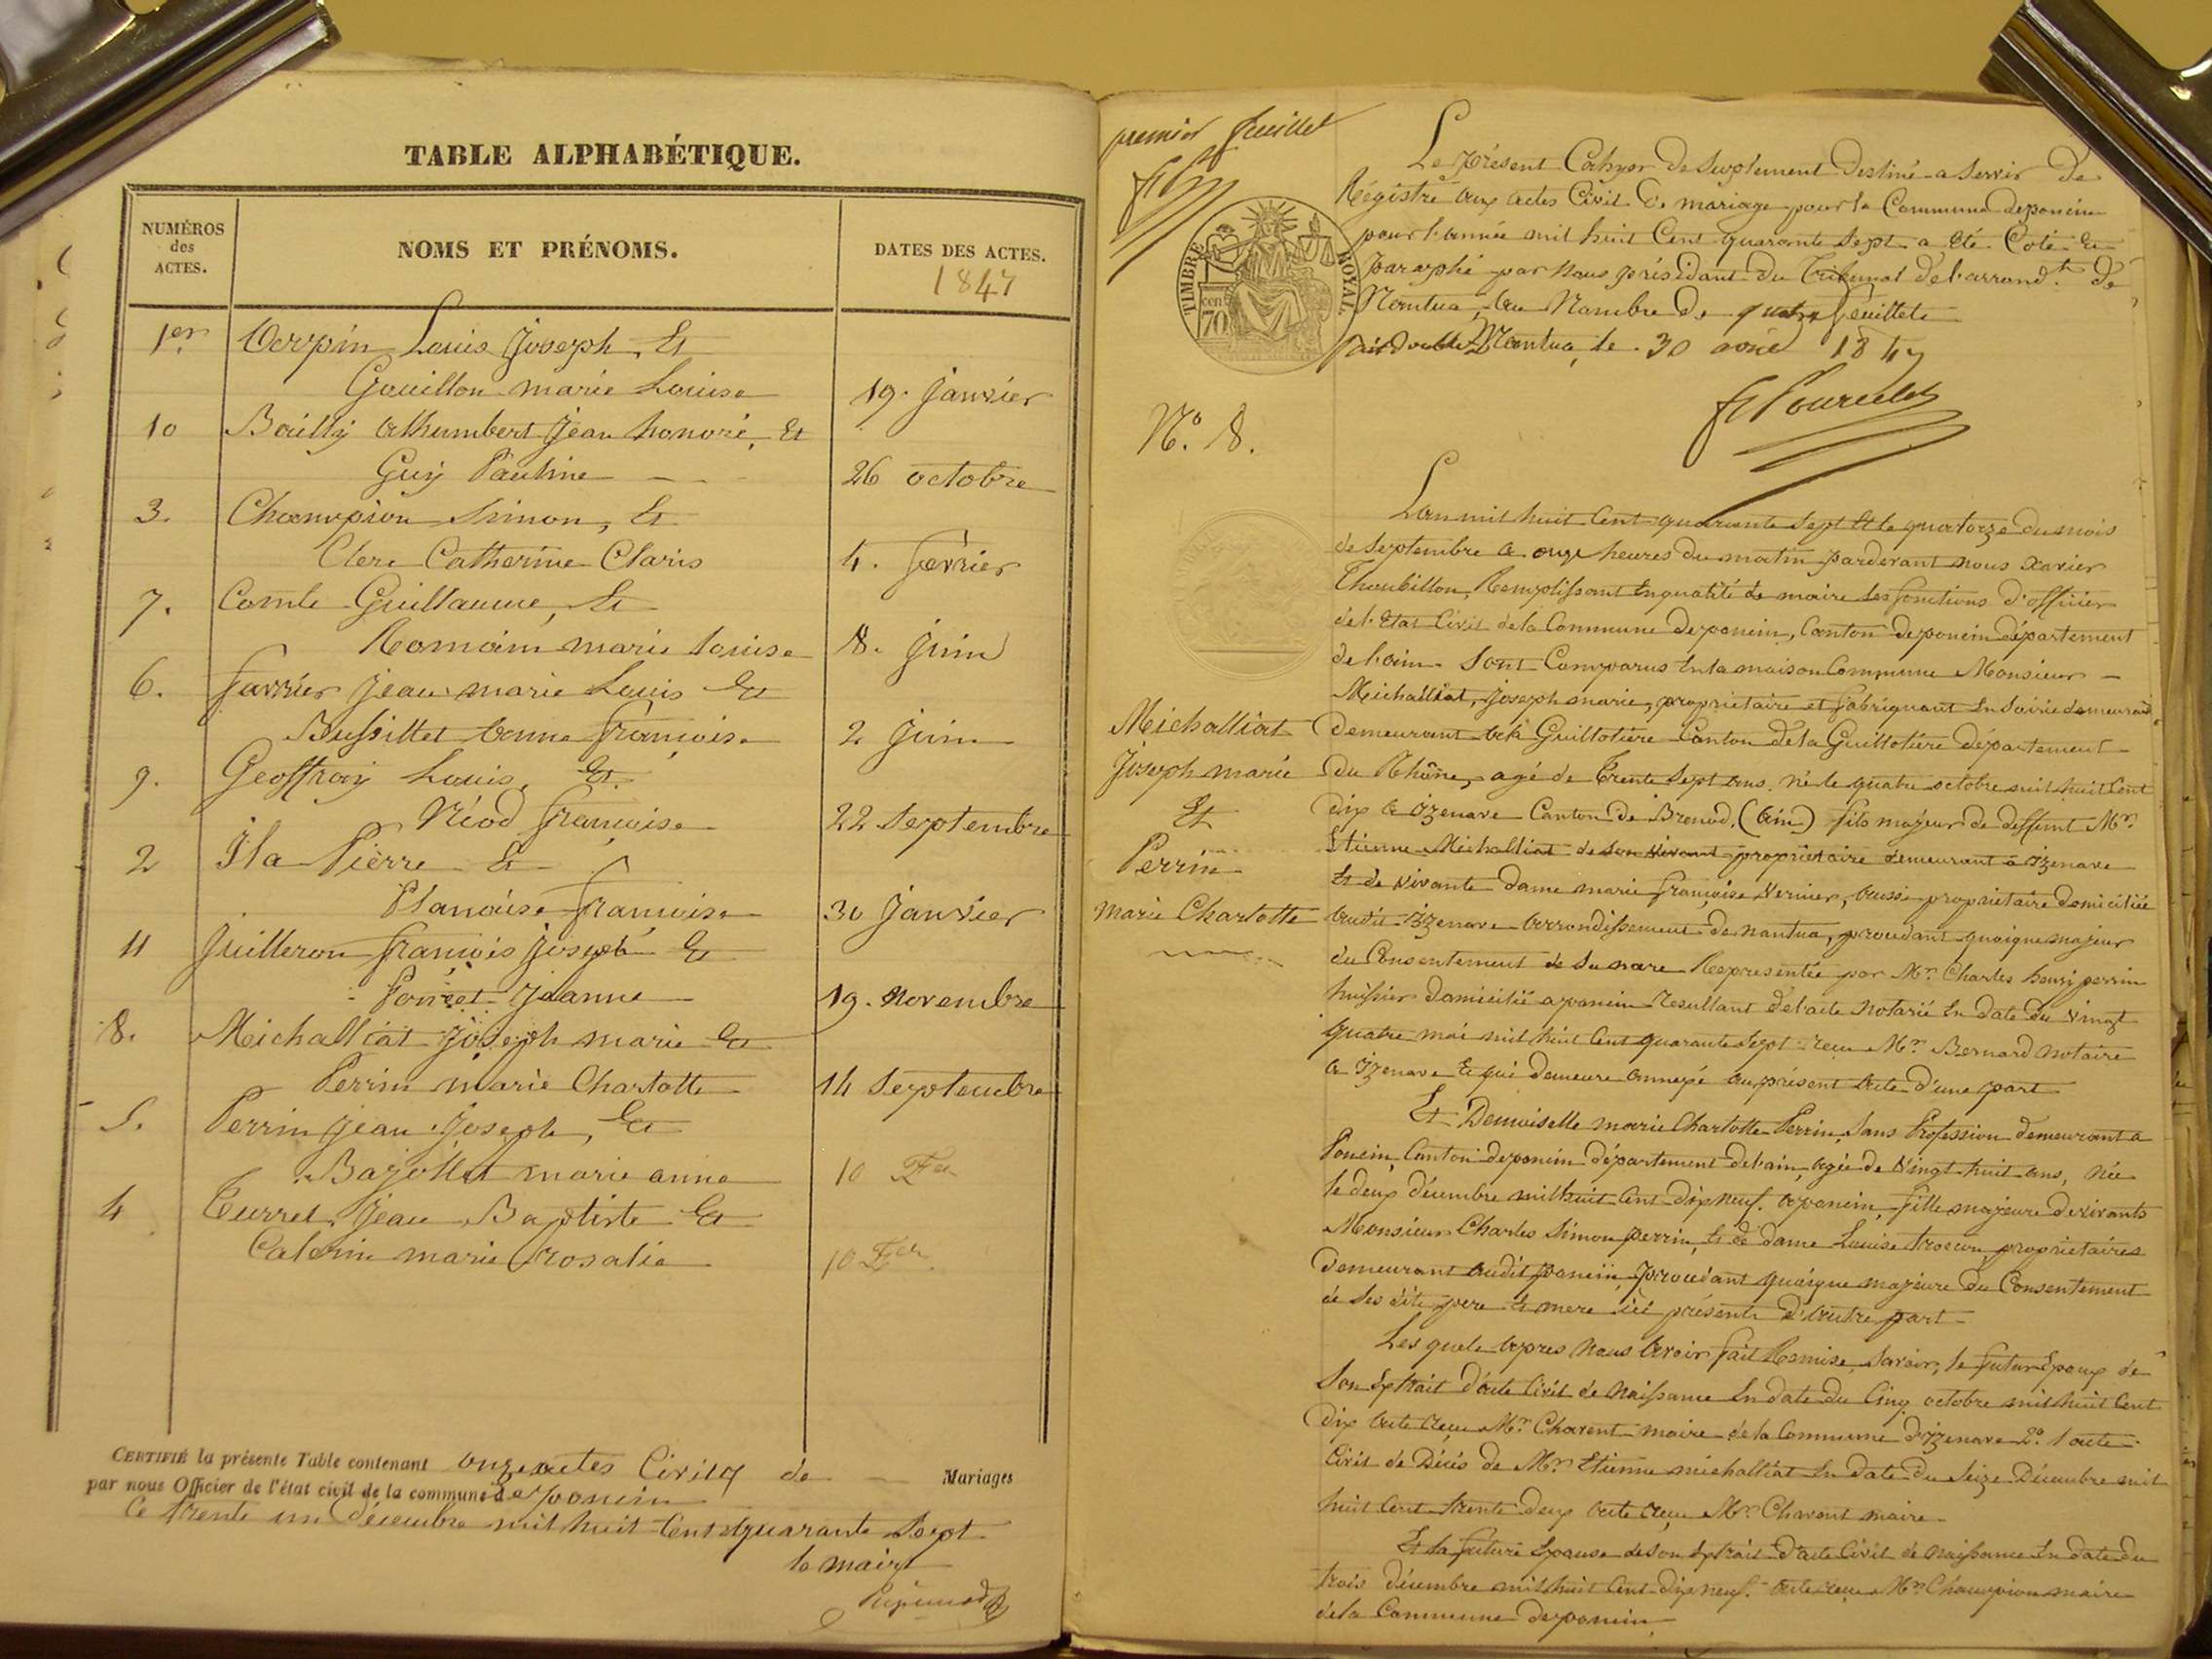 TABLE ALPHABÉTIQUE.
NUMÉROS des ACTES.
NOMS ET PRÉNOMS.
DATES DES ACTES.
1847
1er Carpin Louis Joseph, Et
Gouillon marie Louise 19. Janvier
10 Bailly Athumbert Jean honoré, Et
Guy Pauline 26 octobre
3. Champion Simon, Et
Clerc Catherine Claris 4. fevrier
7. Comte Guillaume, Et
Romain marie Louise 8. Juin
6. favrier Jean marie Louis Et
Bussillet anne françoise 2 Juin
9. Geoffray Louis, Et
Néod françoise 22 Septembre
2 Ila Pierre Et
Planoise françoise 30 Janvier
11 Juilleron françois Joseph Et
Poncet Jeanne 19. Novembre
8. Michalliat Joseph marie Et
Perrin marie Charlotte 14 Septembre
5. Perrin Jean Joseph, Et
Bajollet marie anne 10 Fer
4 Turrel Jean Baptiste Et
Caterin marie rosalie 10 Fer
CERTIFIÉ la présente Table contenant onze actes Civils de Mariages
par nous Officier de l'état civil de la commune de poncin
Ce trente un Décembre mil huit Cent quarante Sept
le maire
premier feuillet
Le présent Cahyer de Suplement Destiné a Servir De
Régistre aux actes Civil De mariage pour la Commune deponcin
pour l'année mil huit Cent quarante Sept a été Coté Et
paraphé par Nous président Du Tribunal de l'arrond.t De
Nantua, au Nombre De quatre feuillets
fait double Nantua, le 30 août 1847
TIMBRE ROYAL
70 cen
N.o 8.
L'an mil huit Cent quarante Sept Et le quatorze du mois
de Septembre a onze heures du matin pardevant nous Xavier
Thoubillon, Remplissant En qualité de maire les fonctions d'officier
de l'Etat Civil de la Commune deponcin, Canton deponcin département
de l'ain. Sont Comparus En la maison Commune Monsieur -
Michalliat, Joseph marie, propriétaire et fabriquant En Soirie demeurant
Michalliat
Joseph marie
Et
Perrin
Marie Charlotte
demeurant a la Guillotière Canton de la Guillotière département
du Rhône, agé de trente Sept ans. né le quatre octobre mil huit Cent
dix a izenave Canton de Brenod, (ain) fils majeur de deffunt Mr.
Etienne Michalliat de Son vivant propriétaire demeurant a izenave
Et de vivante dame marie françoise Vernier, aussi propriétaire domiciliée
audit izenave arrondissement de nantua, procédant quoique majeur
du Consentement de Sa mere Representée par Mr. Charles henri perrin
huissier domicilié a poncin resultant de l'acte notarié En date du vingt
quatre mai mil huit Cent quarante Sept recu Mr. Bernard notaire
a izenave Et qui demeure annexé au présent acte d'une part
Et Demoiselle marie Charlotte Perrin, Sans Profession demeurant a
Poncin, Canton deponcin département de l'ain, agée de Vingt huit ans, née
le deux décembre mil huit Cent dix neuf. a poncin, fille majeure de vivants
Monsieur Charles Simon perrin, Et de dame Louise trocon, propriétaires
demeurant audit poncin, procédant quoique majeure du Consentement
de Ses dits pere Et mere ici présents d'autre part
Les quels apres Nous avoir fait Remise, Savoir, le futur Epoux de
Son Extrait d'acte Civil de Naissance En date du Cinq octobre mil huit Cent
dix acte recu Mr. Charent maire de la Commune d'izenave 2.o l'acte
Civil de Décés de Mr. Etienne michalliat En date du Seize Décembre mil
huit Cent trente deux acte recu Mr. Charent maire
Et la future Epouse de Son Extrait d'acte Civil de Naissance En date du
trois décembre mil huit Cent dix neuf. acte recu Mr. Champion maire
de la Commune deponcin